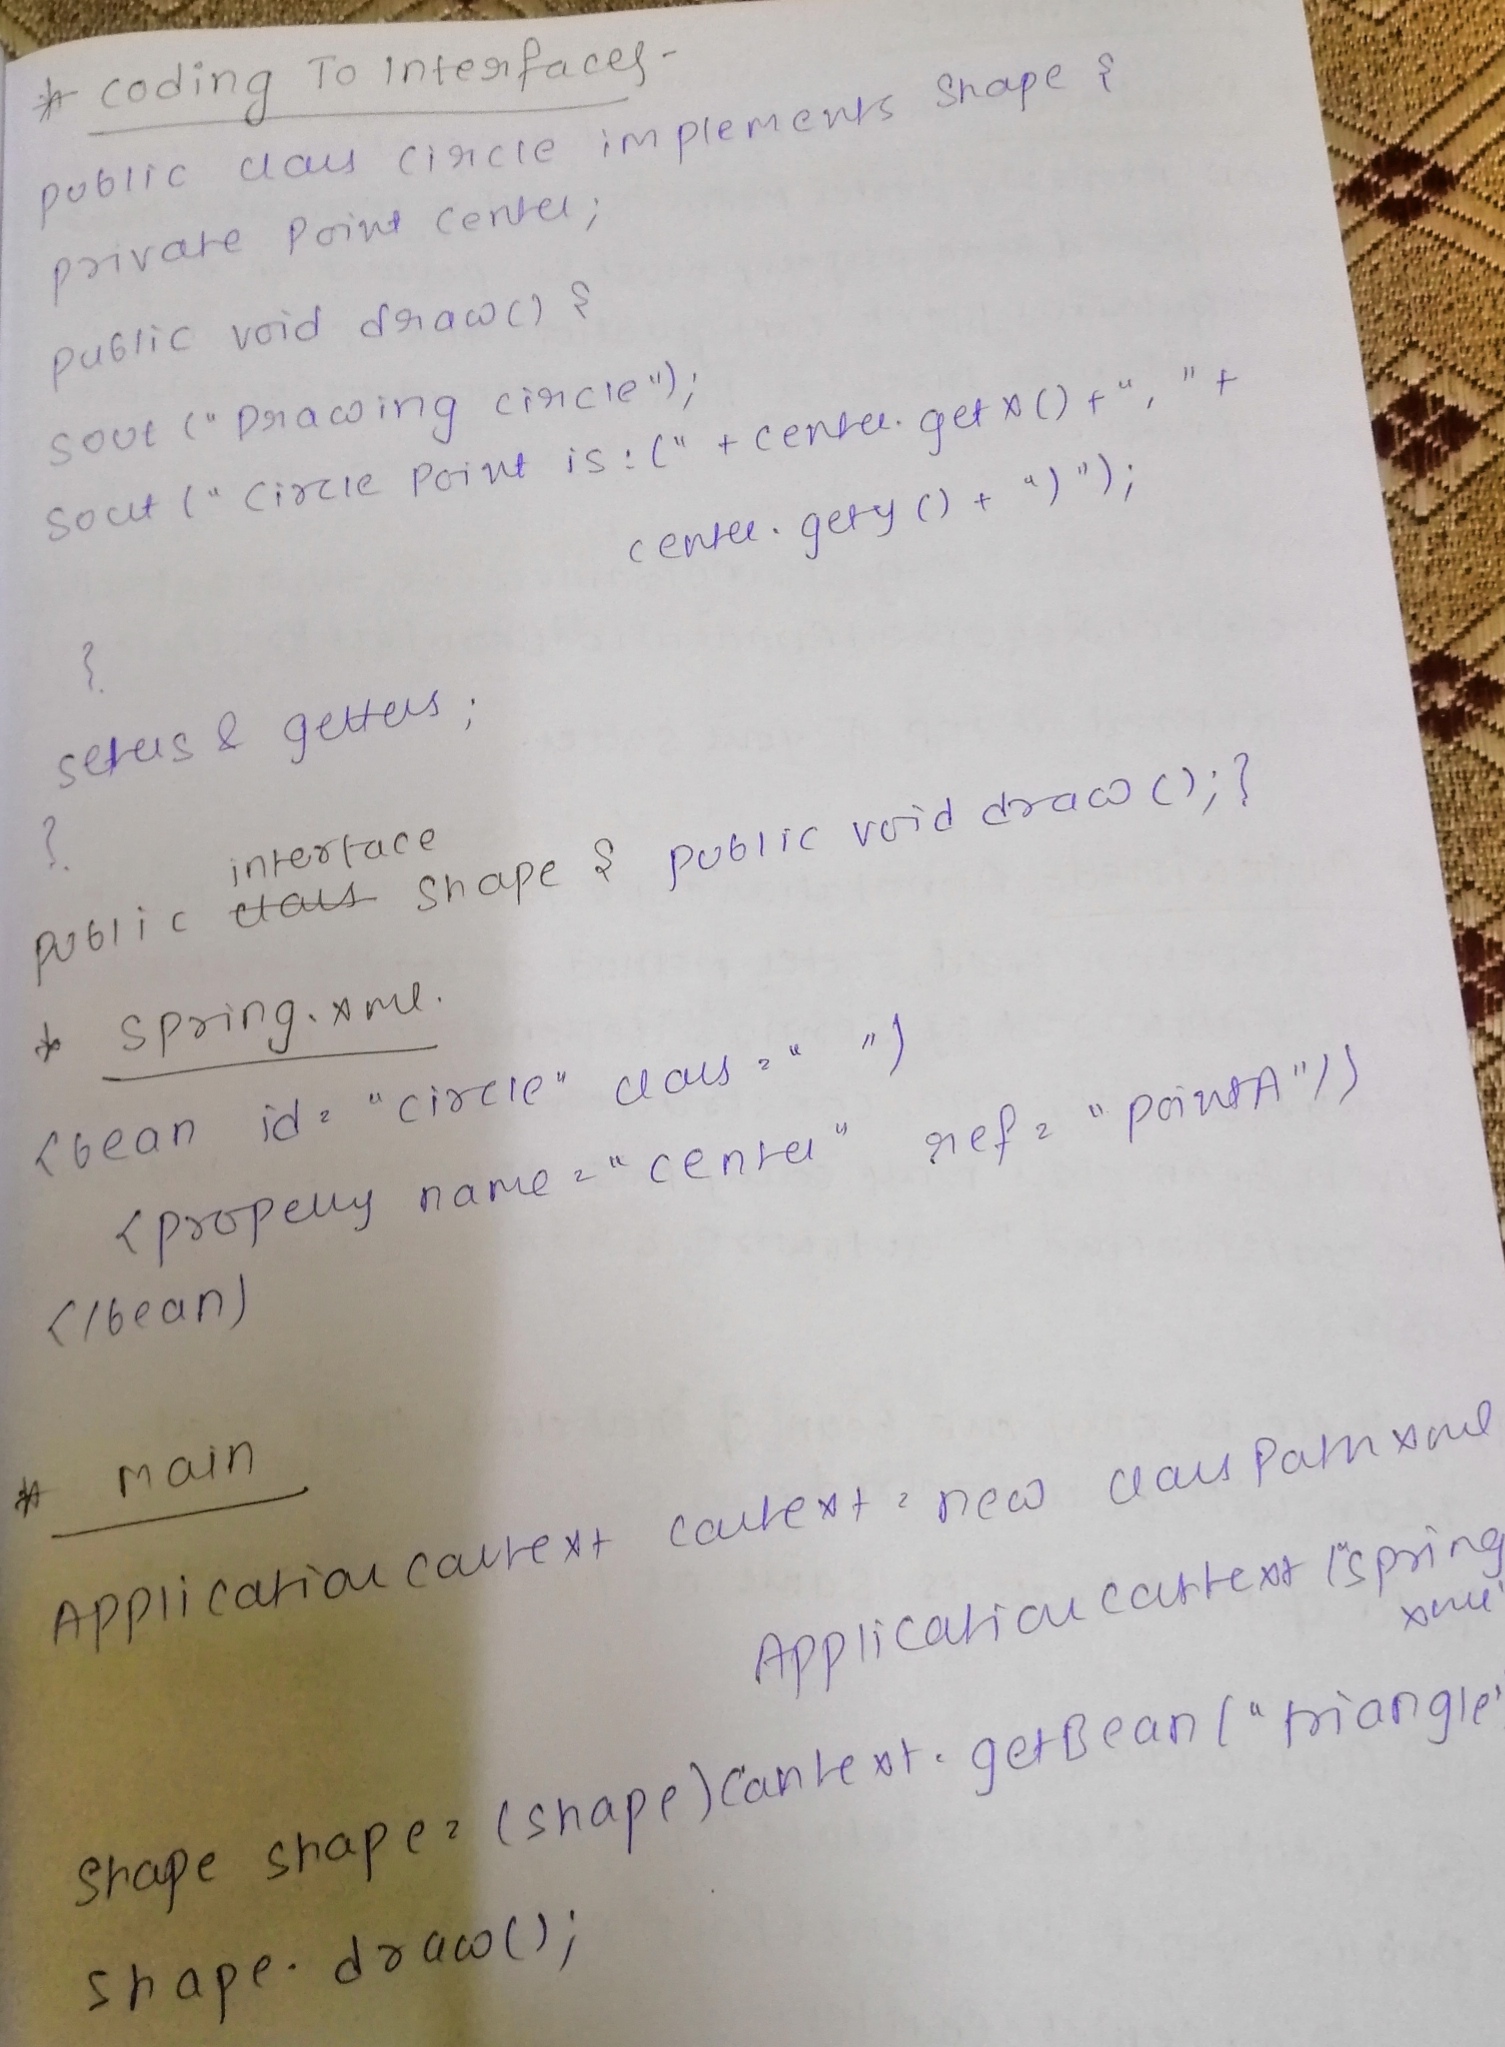 * Coding To Interfaces-
public class Circle implements Shape {
private Point center;
public void draw() {
sout ("Drawing circle");
sout ("Circle Point is: (" + center.getX() + ", " +
center.gety() + ")");
}
seters & getters;
}
interface
public class Shape { public void draw(); }
* Spring.xml.
<bean id = "circle" class = " ">
<property name = "center" ref = "pointA"/>
</bean>
* Main
Application context context = new classPath xml
Application context ("spring
xml"
Shape shape = (shape) context.getBean ("triangle"
shape.draw();